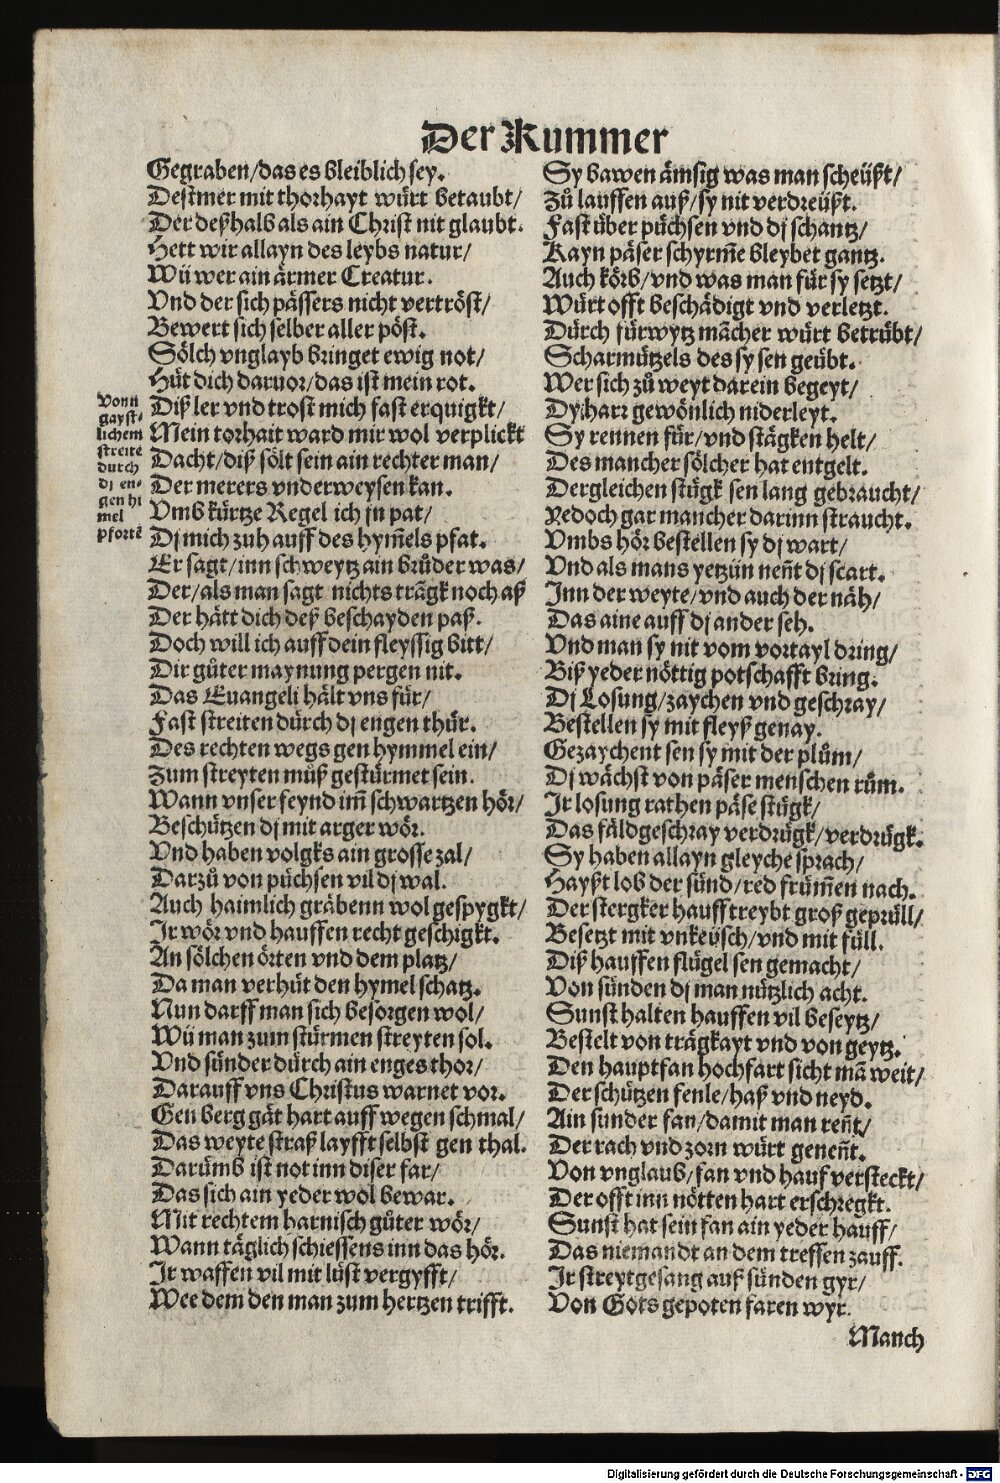 Der Kummer
Gegraben/das es bleiblich sey.
Destmer mit thorhayt würt betaubt/
Der deßhalb als ain Christ nit glaubt.
Hett wir allayn des leybs natur/
Wü wer ain ärmer Creatur.
Vnd der sich pässers nicht vertröst/
Bewert sich selber aller pöst.
Sölch vnglayb bringet ewig not/
Hüt dich daruor/das ist mein rot.
Diß ler vnd trost mich fast erquigkt/
Mein torhait ward mir wol verplickt
Dacht/diß sölt sein ain rechter man/
Der merers vnderweysen kan.
Vmb kürtze Regel ich jn pat/
Dj mich zuh auff des hym̃els pfat.
Er sagt/inn schweytz ain brůder was/
Der/als man sagt nichts trãgk noch aß
Der hätt dich deß beschayden paß.
Doch will ich auff dein fleyssig bitt/
Dir gůter maynung pergen nit.
Das Euangeli hält vns für/
Fast streiten dürch dj engen thür.
Des rechten wegs gen hymmel ein/
Zum streyten můß gestürmet sein.
Wann vnser feynd im̃ schwartzen hör/
Beschützen dj mit arger wör.
Vnd haben volgks ain grosse zal/
Darzů von püchsen vil dj wal.
Auch haimlich gräbenn wol gespygkt/
Ir wör vnd hauffen recht geschigkt.
An sölchen örten vnd dem platz/
Da man verhüt den hymel schatz.
Nun darff man sich besorgen wol/
Wü man zum stürmen streyten sol.
Vnd sünder dürch ain enges thor/
Darauff vns Christus warnet vor.
Gen berg gät hart auff wegen schmal/
Das weyte straß layfft selbst gen thal.
Darümb ist not inn diser far/
Das sich ain yeder wol bewar.
Mit rechtem harnisch gůter wör/
Wann täglich schiessens inn das hör.
Ir waffen vil mit lüst vergyfft/
Wee dem den man zum hertzen trifft.
Vonn
gayst-
lichem
streite
durch
dj en-
gen hi
mel
pfortẽ
Sy bawen ämsig was man scheüßt/
Zů lauffen auß/sy nit verdreüßt.
Fast über püchsen vnd dj schantz/
Kayn päser schyrm̃e bleybet gantz.
Auch körb/vnd was man für sy setzt/
Würt offt beschädigt vnd verletzt.
Dürch fürwytz mãcher würt betrübt/
Scharmützels des sy sen geübt.
Wer sich zů weyt darein begeyt/
Dy harr gewönlich niderleyt.
Sy rennen für/vnd stägken helt/
Des mancher sölcher hat entgelt.
Dergleichen stügk sen lang gebraucht/
Yedoch gar mancher darinn straucht.
Vmbs hör bestellen sy dj wart/
Vnd als mans yetzün nen̄t dj scart.
Inn der weyte/vnd auch der näh/
Das aine auff dj ander seh.
Vnd man sy nit vom vortayl dring/
Biß yeder nöttig potschafft bring.
Dj Losung/zaychen vnd geschray/
Bestellen sy mit fleyß genay.
Gezaychent sen sy mit der plům/
Dj wächst von päser menschen rům.
Ir losung rathen päse stügk/
Das fäldgeschray verdrügk/verdrügk.
Sy haben allayn gleyche sprach/
Hayßt lob der sünd/red früm̃en nach.
Der stergker hauff treybt groß geprüll/
Besetzt mit vnkeüsch/vnd mit füll.
Diß hauffen flügel sen gemacht/
Von sünden dj man nützlich acht.
Sunst halten hauffen vil beseytz/
Bestelt von trägkayt vnd von geytz.
Den hauptfan hochfart sicht mã weit/
Der schützen fenle/haß vnd neyd.
Ain sunder fan/damit man ren̄t/
Der rach vnd zorn würt genen̄t.
Von vnglaub/fan vnd hauf versteckt/
Der offt inn nötten hart erschregkt.
Sunst hat sein fan ain yeder hauff/
Das niemandt an dem treffen zauff.
Ir streytgesang auß sünden gyr/
Von Gots gepoten faren wyr.
Manch
Digitalisierung gefördert durch die Deutsche Forschungsgemeinschaft - DFG